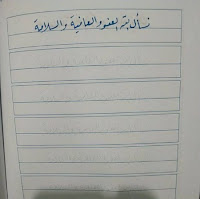 نسأل الله العفو والعافية والسلامة